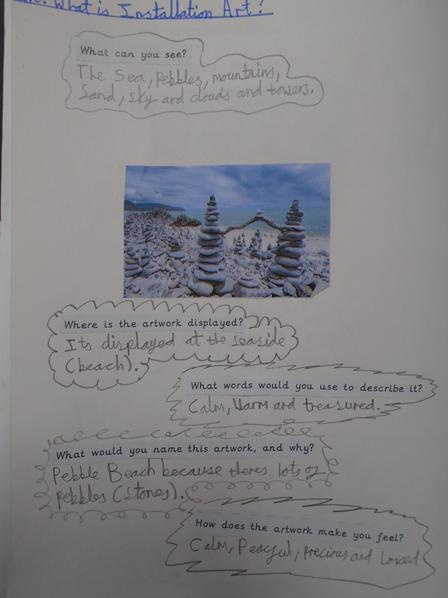 What is Installation Art?
What can you see?
The Sea, Pebbles, mountains,
Sand, sky and clouds and towers.
Where is the artwork displayed?
Its displayed at the seaside
(beach).
What words would you use to describe it?
Calm, Warm and treasured.
What would you name this artwork, and why?
Pebble Beach because theres lots of
Pebbles (stones).
How does the artwork make you feel?
Calm, Peacful, precious and Loved